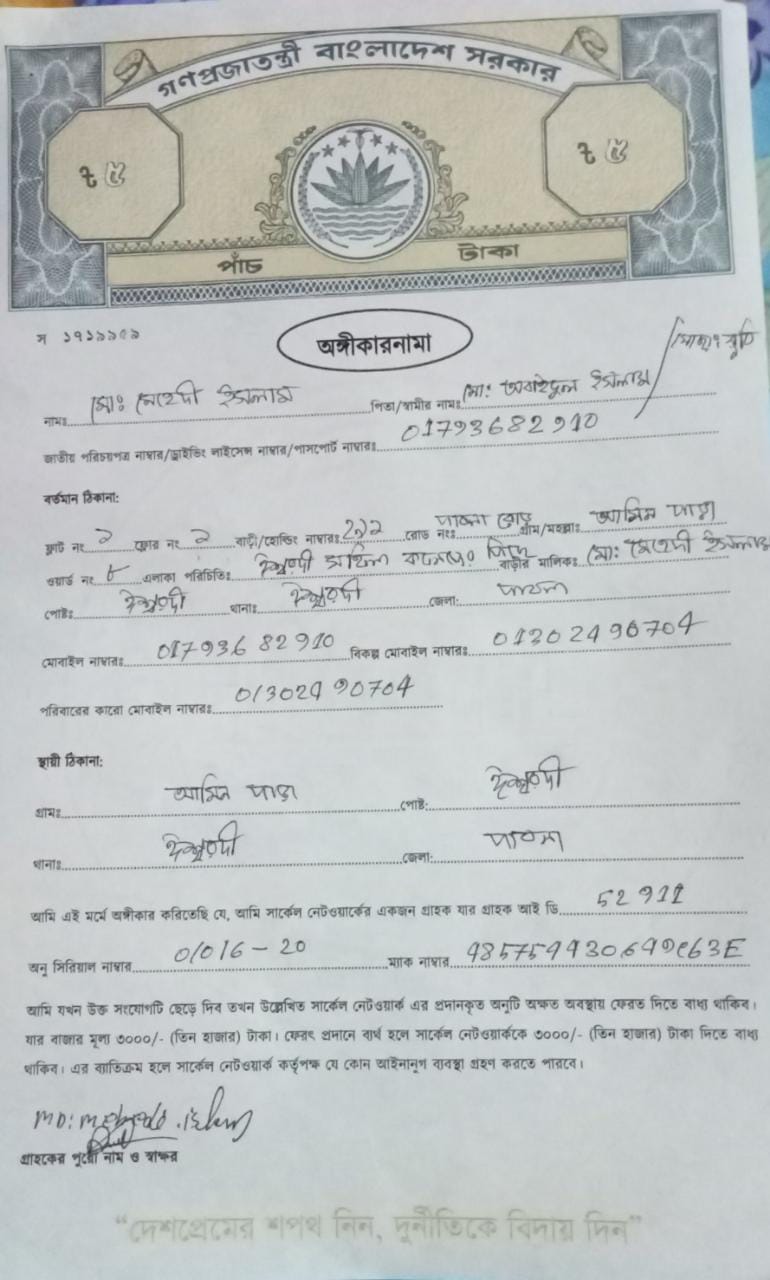 গণপ্রজাতন্ত্রী বাংলাদেশ সরকার
৳ ৫ ৳ ৫
পাঁচ টাকা
অঙ্গীকারনামা
নামঃ মোঃ মেহেদী ইসলাম পিতা/স্বামীর নামঃ মো: ওবাইদুল ইসলাম
জাতীয় পরিচয়পত্র নাম্বার/ড্রাইভিং লাইসেন্স নাম্বার/পাসপোর্ট নাম্বারঃ 01793682910
বর্তমান ঠিকানা:
ফ্লাট নং ২ ফ্লোর নং ২ বাড়ী/হোল্ডিং নাম্বারঃ রোড নংঃ পাবনা রোড গ্রাম/মহল্লাঃ আমিন পাড়া
ওয়ার্ড নং ৮ এলাকা পরিচিতিঃ ঈশ্বরদী বাড়ীর মালিকঃ মো: মেহেদী ইসলাম
পোষ্টঃ ঈশ্বরদী থানাঃ ঈশ্বরদী জেলা: পাবনা
মোবাইল নাম্বারঃ 01793682910 বিকল্প মোবাইল নাম্বারঃ 01302490704
পরিবারের কারো মোবাইল নাম্বারঃ 01302490704
স্থায়ী ঠিকানা:
গ্রামঃ আমিন পাড়া পোষ্ট: ঈশ্বরদী
থানাঃ ঈশ্বরদী জেলা: পাবনা
আমি এই মর্মে অঙ্গীকার করিতেছি যে, আমি সার্কেল নেটওয়ার্কের একজন গ্রাহক যার গ্রাহক আই ডি 52911
অনু সিরিয়াল নাম্বার 01016-20 ম্যাক নাম্বার
আমি যখন উক্ত সংযোগটি ছেড়ে দিব তখন উল্লেখিত সার্কেল নেটওয়ার্ক এর প্রদানকৃত অনুটি অক্ষত অবস্থায় ফেরত দিতে বাধ্য থাকিব।
যার বাজার মূল্য ৩০০০/- (তিন হাজার) টাকা। ফেরৎ প্রদানে ব্যর্থ হলে সার্কেল নেটওয়ার্ককে ৩০০০/- (তিন হাজার) টাকা দিতে বাধ্য
থাকিব। এর ব্যতিক্রম হলে সার্কেল নেটওয়ার্ক কর্তৃপক্ষ যে কোন আইনানুগ ব্যবস্থা গ্রহণ করতে পারবে।
গ্রাহকের পুরো নাম ও স্বাক্ষর
“দেশপ্রেমের শপথ নিন, দুর্নীতিকে বিদায় দিন”